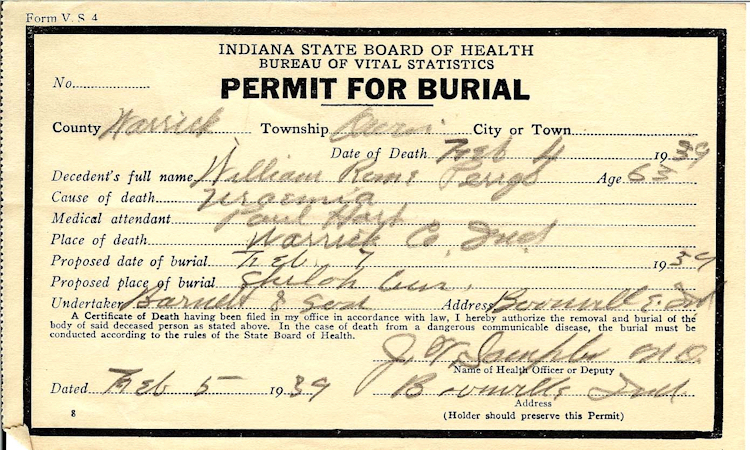 Form V. S. 4
INDIANA STATE BOARD OF HEALTH
BUREAU OF VITAL STATISTICS
PERMIT FOR BURIAL
No.
County Warrick Township City or Town
Date of Death Feb 4 1939
Decedent's full name William Perigo Age 63
Cause of death Uraemia
Medical attendant Paul Hart
Place of death Warrick Co, Ind
Proposed date of burial Feb. 7 1939
Proposed place of burial Shiloh Cem.
Undertaker Barnett & Son Address Boonville. Ind
A Certificate of Death having been filed in my office in accordance with law, I hereby authorize the removal and burial of the
body of said deceased person as stated above. In the case of death from a dangerous communicable disease, the burial must be
conducted according to the rules of the State Board of Health.
J W M D.
Name of Health Officer or Deputy
Dated Feb 5 1939 Boonville Ind
Address
8 (Holder should preserve this Permit)